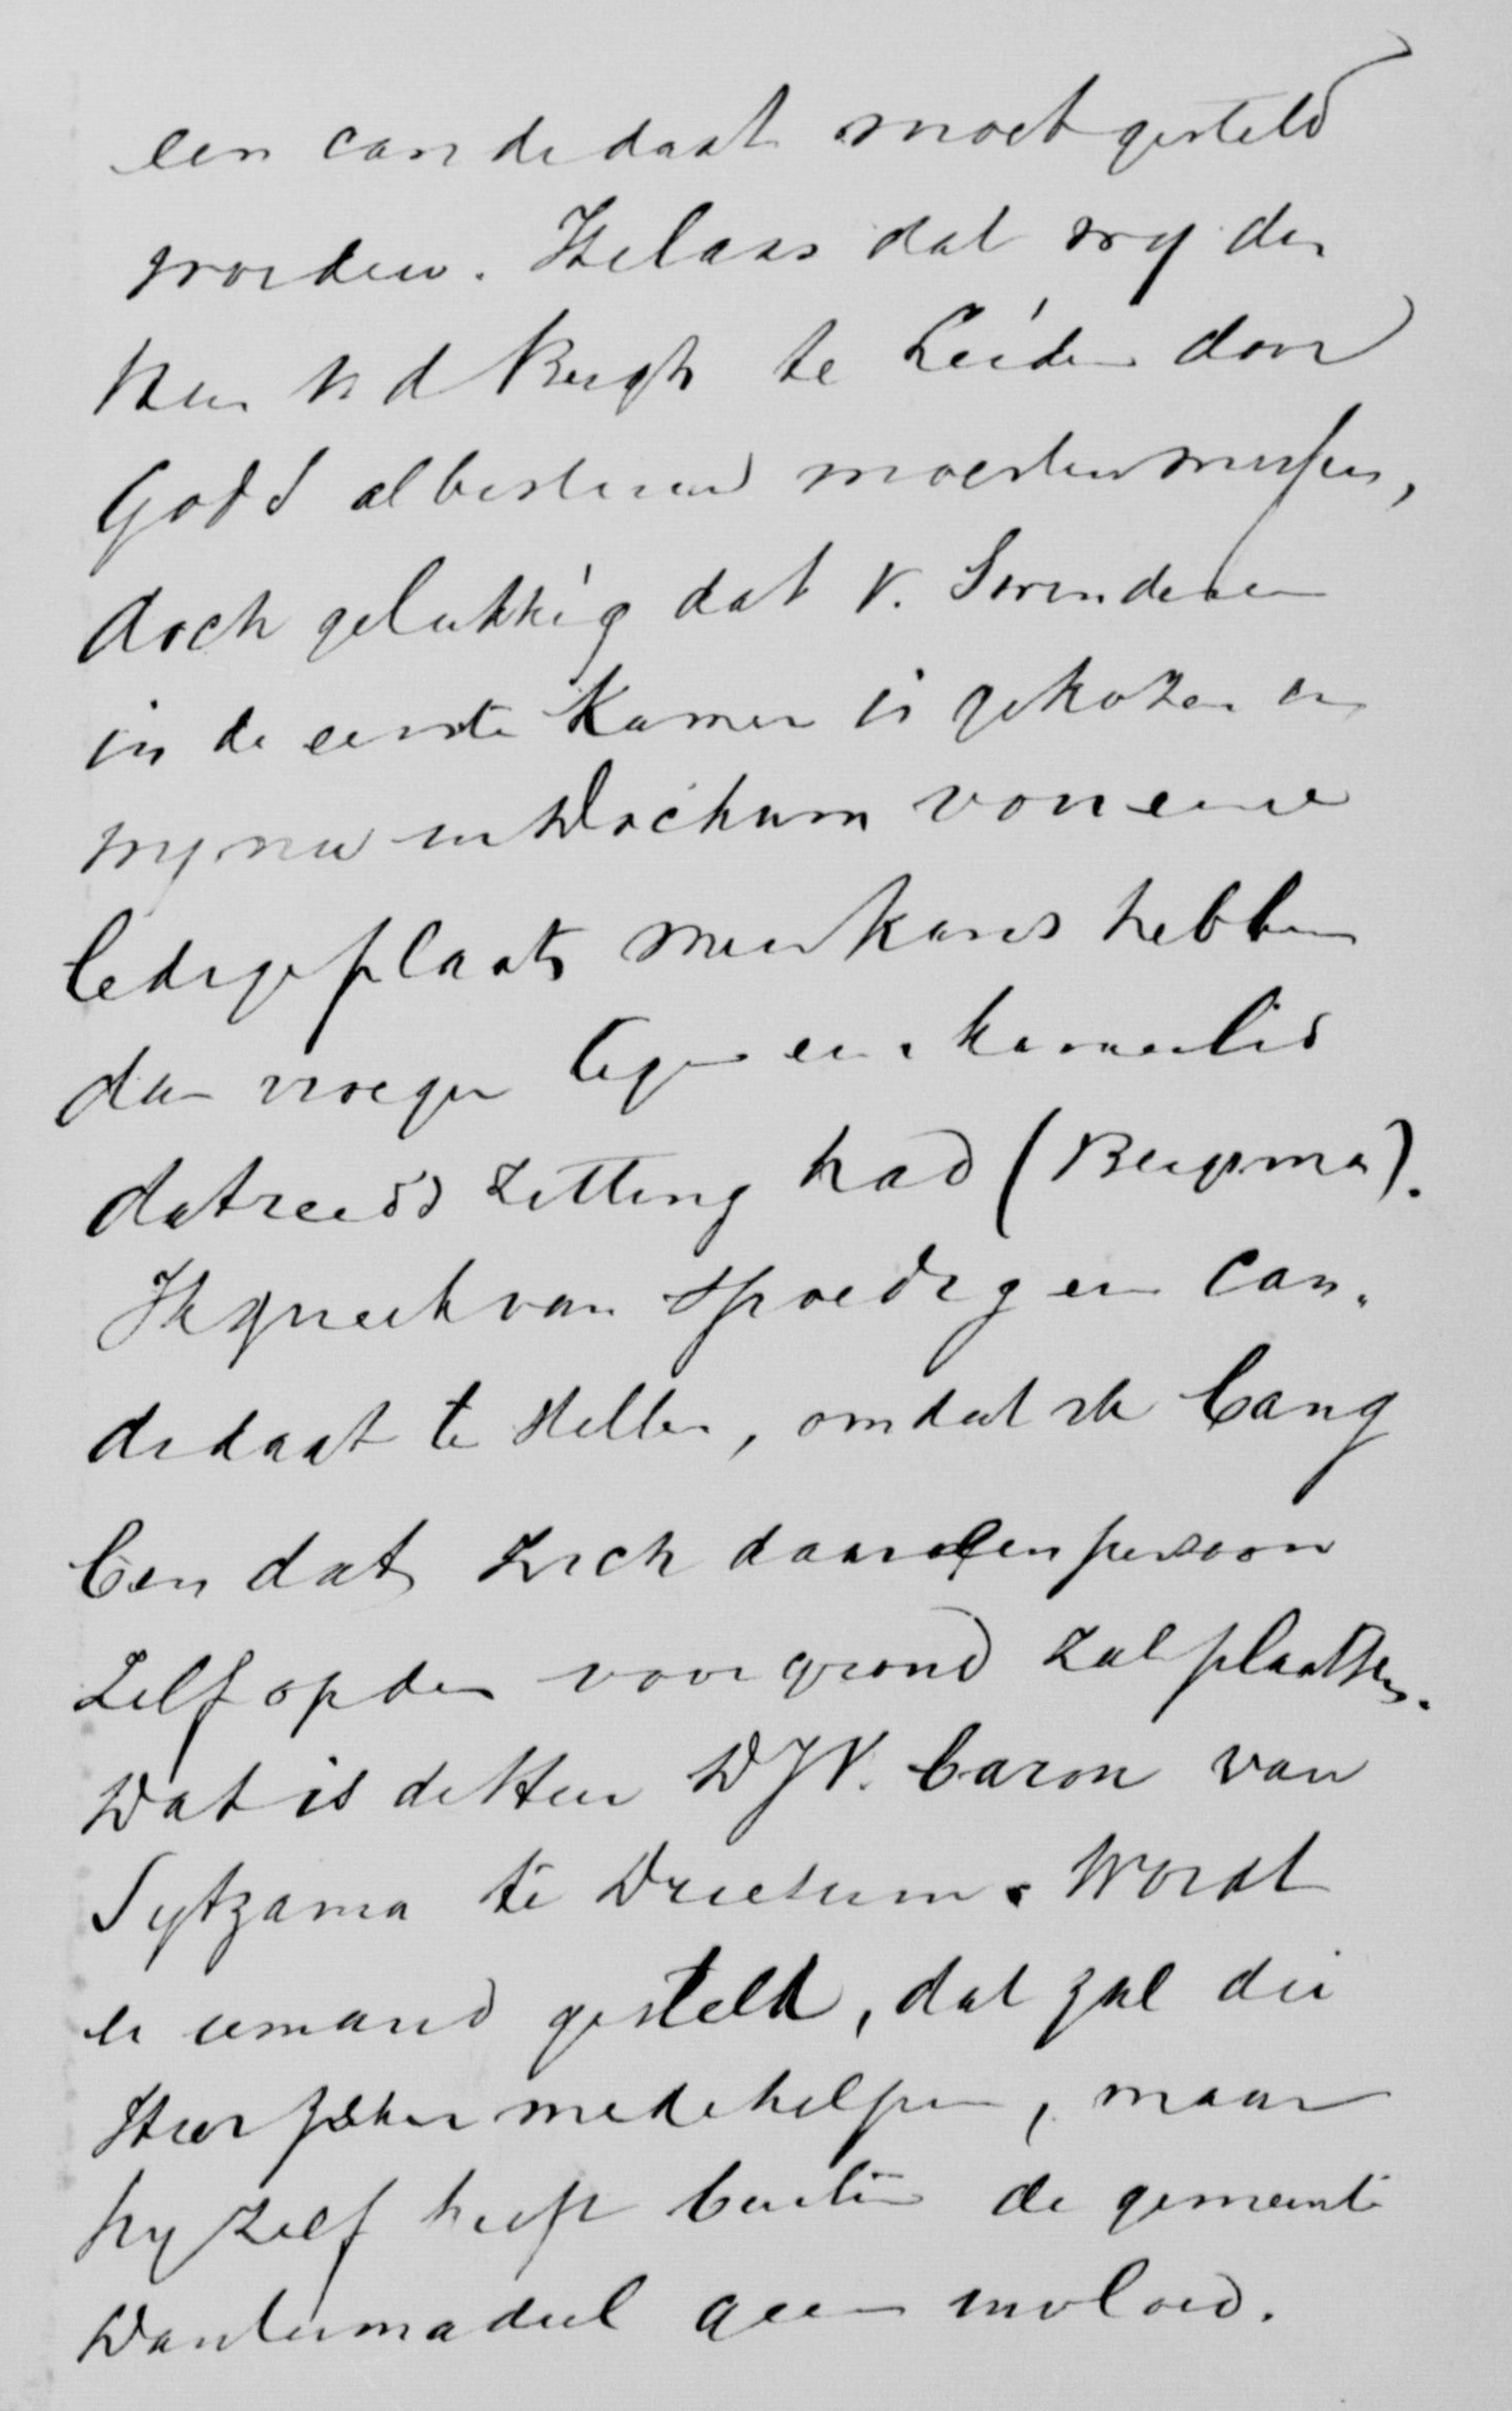 een candidaat moet gesteld
worden. Helaas dat wy den
Heer v d Bergh te Leiden door
Gods albestuur moesten missen,
doch gelukkig dat v. Swinderen
in de eerste Kamer is gekozen en
wy nu in Dockum voor eene
ledige plaats meer kans hebben
dan vroeger tegen een kamerlid
dat reeds zitting had (Bergsma).
Ik spreek van spoedig een can-
didaat te stellen, omdat ik bang
ben dat zich daar een persoon
zelf op den voorgrond zal plaatsen.
Dat is de Heer D J V. baron van
Sytzama te Driesum. Wordt
er iemand gesteld, dat zal die
Heer zeker medehelpen, maar
hy zelf heeft buiten de gemeente
Dantumadeel geen invloed.